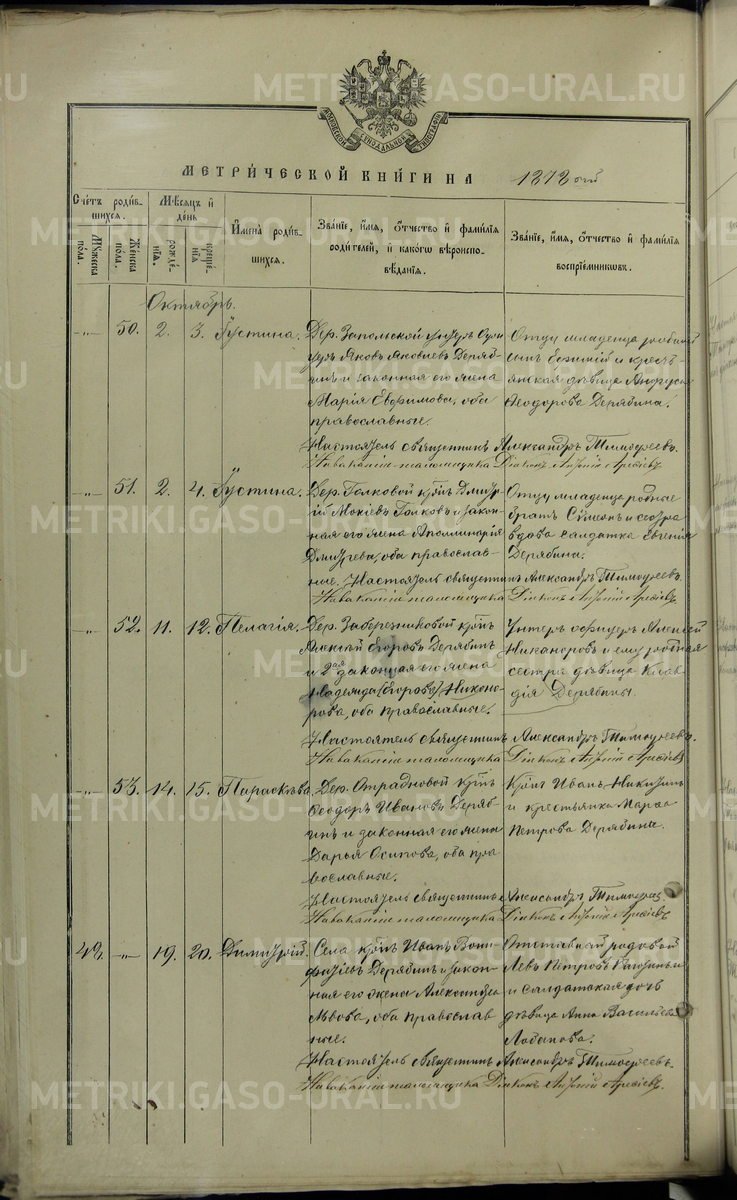 METRIKI.GASO-URAL.RU
МОСКОВСКОЙ СѴНОДАЛЬНОЙ ТИПОГРАФІИ
МЕТРИ́ЧЕСКОЙ КНИ́ГИ НА 1878 ой
Сче́тъ роди́в-
шихся.
Мꙋ́жеска
по́ла.
Же́нска
по́ла.
Мѣ́сяцъ и
де́нь
рожде́-
нїѧ.
креще́-
нїѧ
И҆мена̀ роди́в-
шихся.
Зва́нїе, и҆́мѧ, ѻ҆́тчество и҆ фами́лїѧ
роди́телей, и҆ како́гѡ вѣроиспо-
вѣ́данїѧ.
Зва́нїе, и҆́мѧ, ѻ҆́тчество и҆ фами́лїѧ
воспрїе́мникѡвъ.
Октябрь.
-„- 50. 2. 3. Іустина.
Дер. Запольской унтеръ Офи
церъ Яковъ Яковлевъ Деряб
инъ и законная его жена
Марія Евфимова, оба
православные.
Отцу младенца родный
и крестъ-
янская дѣвица
Ѳеодорова Дерябина.
Настоятель священникъ Александръ Тимоѳеевъ.
На ваканціи псаломщика Діаконъ Антоній
-„- 51. 2. 4. Іустина.
Дер. Голковой крест. Дмит
рій Мокіевъ Голковъ и закон
ная его жена Аполлинарія
Дмитріева, оба православ-
ные.
Отцу младенца родные
братъ Сѵмеонъ и сестра
вдова солдатка Евгенія
Дерябина.
Настоятель священникъ Александръ Тимоѳеевъ.
На ваканціи псаломщика Діаконъ Антоній
-„- 52. 11. 12. Пелагія.
Дер. Заберезниковой крест.
Алексѣй Егоровъ Дерябинъ
и 2ая законная его жена
Надежда (Егорова) Никоно-
рова, оба православные.
Унтеръ офицеръ Алексѣй
Никаноровъ и ему родная
сестра дѣвица Клав
дія Дерябины.
Настоятель священникъ Александръ Тимоѳеевъ.
На ваканціи псаломщика Діаконъ Антоній
-„- 53. 14. 15. Параскѣва.
Дер. Отрадновой крест.
Ѳеодоръ Ивановъ Деряб-
инъ и законная его жена
Дарья Осипова, оба пра
вославные.
Крест. Иванъ Никитинъ
и крестьянка Марѳа
Петрова Дерябина.
Настоятель священникъ Александръ Тимоѳеев.
На ваканціи псаломщика Діаконъ Антоній
49. -„- 19. 20. Димитрій.
Села крест. Иванъ Вони-
фатіевъ Дерябинъ и закон-
ная его жена Александра
Львова, оба православ
ные.
Отставной рядовой
Левъ Петровъ
и солдатская дочь
дѣвица Анна Васильева
Лобанова.
Настоятель священникъ Александръ Тимоѳеевъ.
На ваканціи псаломщика Діаконъ Антоній